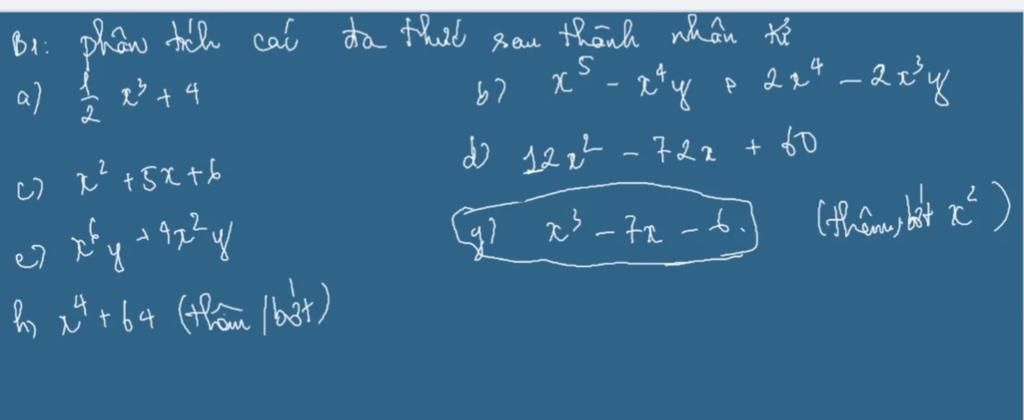 B1: phân tích các đa thức sau thành nhân tử
a) \frac{1}{2} x^3 + 4
b) x^5 - x^4y + 2x^4 - 2x^3y
c) x^2 + 5x + 6
d) 12x^2 - 72x + 60
e) x^6y + 4x^2y
g) x^3 - 7x - 6. (thêm, bớt x^2)
h) x^4 + 64 (thêm / bớt)